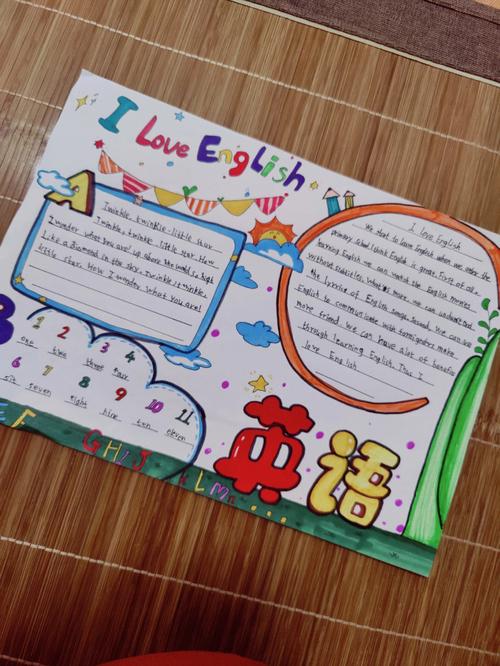 I Love English
A
Twinkle, twinkle, little star
Twinkle, twinkle, little star How
I wonder what you are! up above the world so high
Like a diamond in the sky. twinkle, twinkle,
little star. How I wonder what you are!
I love English
We start to learn English when we enter the
primary school I think English is great. First of all,
learning English we can watch the English movies
without subtitles. what's more. we can understand
the lyrics of English songs. second. we can use
English to communicate with foreigners make
more friend. we can have a lot of benefits
through learning English. Thus I
love English
B
1 2 3 4
one two three four
6 7 8 9 10 11
six seven eight nine ten eleven
E F G H I J K L M n
英语